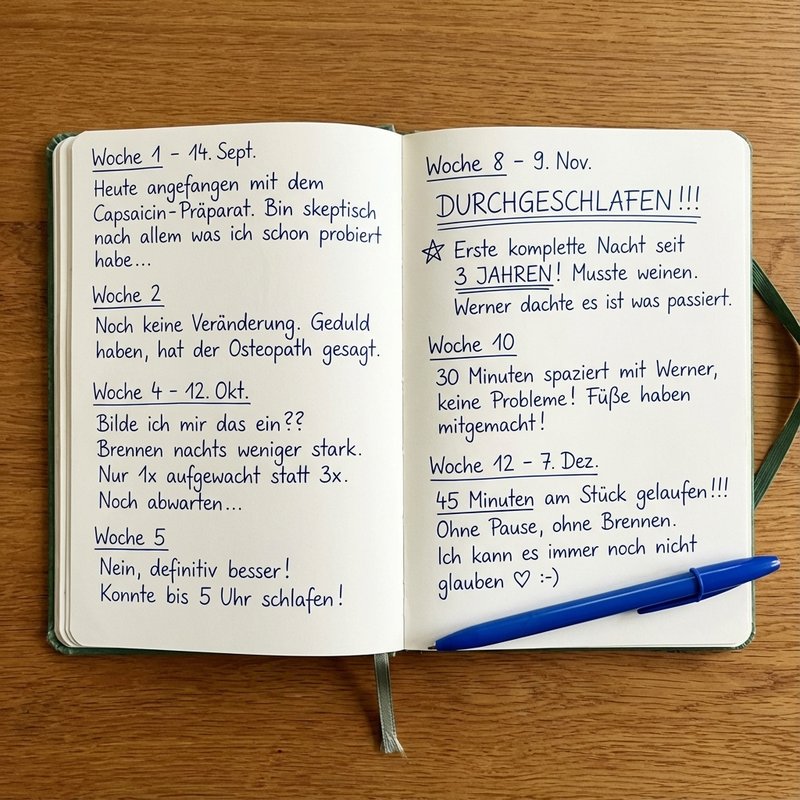 Woche 1 - 14. Sept.
Heute angefangen mit dem
Capsaicin-Präparat. Bin skeptisch
nach allem was ich schon probiert
habe...
Woche 2
Noch keine Veränderung. Geduld
haben, hat der Osteopath gesagt.
Woche 4 - 12. Okt.
Bilde ich mir das ein??
Brennen nachts weniger stark.
Nur 1x aufgewacht statt 3x.
Noch abwarten...
Woche 5
Nein, definitiv besser!
Konnte bis 5 Uhr schlafen!
Woche 8 - 9. Nov.
DURCHGESCHLAFEN!!!
☆ Erste komplette Nacht seit
3 JAHREN! Musste weinen.
Werner dachte es ist was passiert.
Woche 10
30 Minuten spaziert mit Werner,
keine Probleme! Füße haben
mitgemacht!
Woche 12 - 7. Dez.
45 Minuten am Stück gelaufen!!!
Ohne Pause, ohne Brennen.
Ich kann es immer noch nicht
glauben ♡ :-)